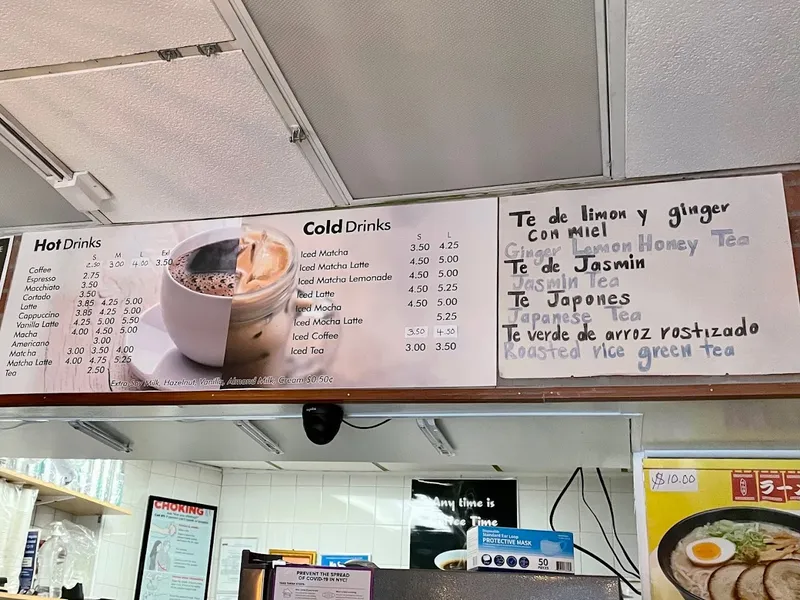 Hot Drinks
S M L Ex.l
Coffee 2.50 3.00 4.00 3.50
Espresso 2.75
Macchiato 3.50
Cortado 3.50
Latte 3.85 4.25 5.00
Cappuccino 3.85 4.25 5.00
Vanilla Latte 4.25 5.50 5.50
Macha 4.00 4.50 5.00
Americano 3.00
Matcha 3.00 3.50 4.00
Matcha Latte 4.00 4.75 5.25
Tea 2.50
Extra Soy Milk, Hazelnut, Vanilla, Almond Milk, Cream $0.50c
Cold Drinks
S L
Iced Matcha 3.50 4.25
Iced Matcha Latte 4.50 5.00
Iced Matcha Lemonade 4.50 5.25
Iced Latte 4.50 5.00
Iced Mocha 4.50 5.00
Iced Mocha Latte 5.25
Iced Coffee 3.50 4.50
Iced Tea 3.00 3.50
Te de limon y ginger
con miel
Ginger Lemon Honey Tea
Te de Jasmin
Jasmin Tea
Te Japones
Japanese Tea
Te verde de arroz rostizado
Roasted rice green tea
CHOKING
Any time is
Time
Standard Ear Loop
PROTECTIVE MASK
50
PREVENT THE SPREAD
OF COVID-19 IN NYC!
$10.00
ラー